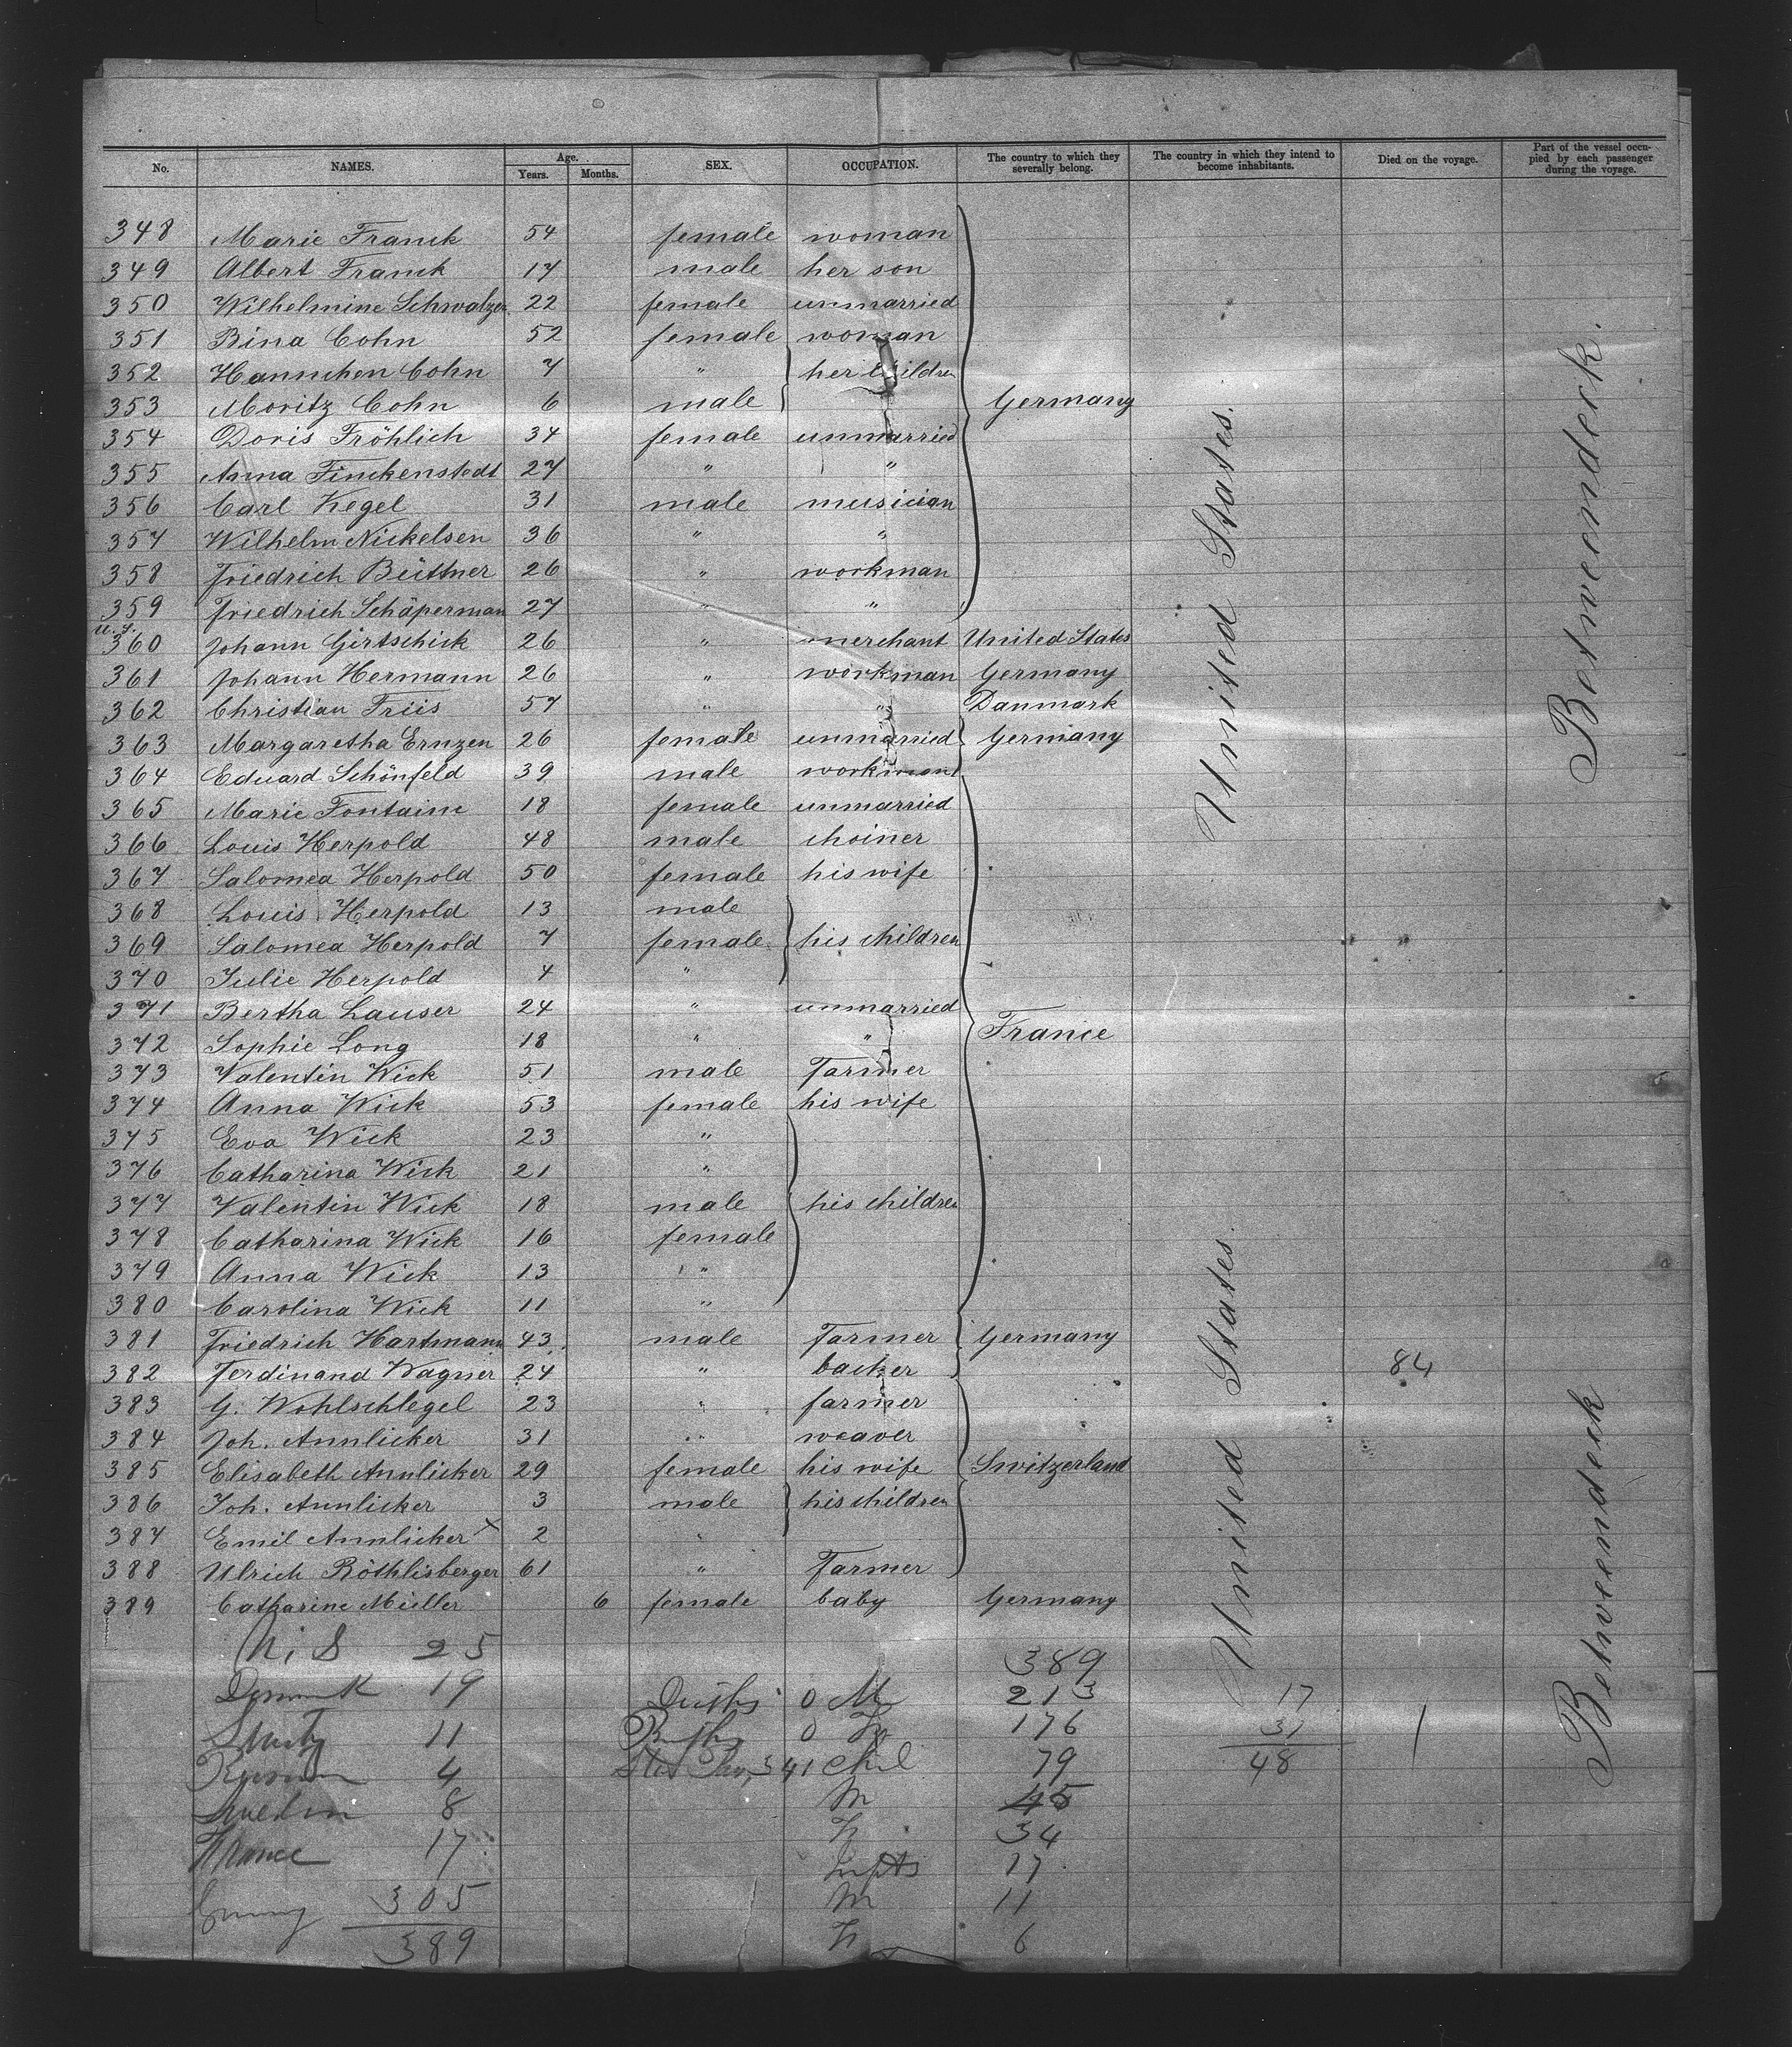 No. NAMES. Age. Years. Months. SEX. OCCUPATION. The country to which they severally belong. The country in which they intend to become inhabitants. Died on the voyage. Part of the vessel occupied by each passenger during the voyage.
348 Marie Franck 54 female woman
349 Albert Franck 17 male her son
350 Wilhelmine Schwalzer 22 female unmarried
351 Bina Cohn 52 female woman
352 Hannchen Cohn 7 " her children
353 Moritz Cohn 6 male Germany
354 Doris Fröhlich 34 female unmarried
355 Anna Finckenstedt 27 " "
356 Carl Kegel 31 male musician
357 Wilhelm Nickelsen 36 " "
358 Friedrich Büttner 26 " workman
359 Friedrich Schäperman 27 " "
u. s.
360 Johann Girtschick 26 " merchant United States
361 Johann Hermann 26 " workman Germany
362 Christian Friis 57 " " Danmark
363 Margaretha Ernzen 26 female unmarried Germany
364 Eduard Schönfeld 39 male workman
365 Marie Fontaine 18 female unmarried
366 Louis Herpold 48 male choiner
367 Salomea Herpold 50 female his wife
368 Louis Herpold 13 male
369 Salomea Herpold 7 female his children
370 Julie Herpold 4 "
371 Bertha Lauser 24 " unmarried
372 Sophie Long 18 " " France
373 Valentin Wick 51 male Farmer
374 Anna Wick 53 female his wife
375 Eva Wick 23 "
376 Catharina Wick 21 "
377 Valentin Wick 18 male his children
378 Catharina Wick 16 female
379 Anna Wick 13 "
380 Carolina Wick 11 "
381 Friedrich Hartmann 43 male Farmer Germany
382 Ferdinand Wagner 24 " backer 84
383 G. Wohlschlegel 23 " farmer
384 Joh. Annlicker 31 " weaver
385 Elisabeth Annlicker 29 female his wife Switzerland
386 Joh. Annlicker 3 male his children
387 Emil Annlicker x 2 "
388 Ulrich Röthlisberger 61 " Farmer
389 Catharine Müller 6 female baby Germany
United States.
United States
Betweendeck.
Betweendeck
U. S 25 389
Denmark 19 Deaths 0 M 213 17
11 Births 0 F 176 31 1
4 341 Chil 79 48
Sweden 8 M 45
France 17 F 34
Infts 17
305 M 11
389 F 6